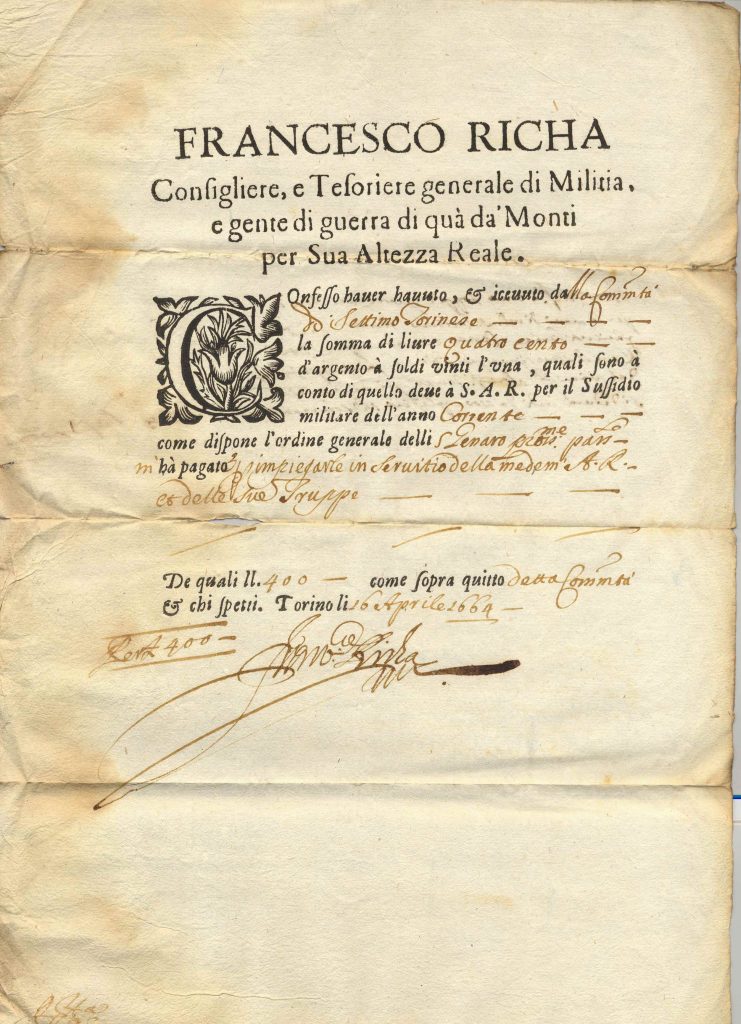 FRANCESCO RICHA
Consigliere, e Tesoriere generale di Militia,
e gente di guerra di quà da' Monti
per Sua Altezza Reale.
COnfesso hauer hauuto, & iceuuto dalla Comm.tà
di Settimo Torinese
la somma di liure quatro cento
d'argento à soldi vinti l'vna, quali sono à
conto di quello deue à S.A.R. per il Sussidio
militare dell'anno Corrente
come dispone l'ordine generale delli
hà pagato impiegarle in servitio della medem A.R.
et delle sue Truppe
De quali ll. 400 — come sopra quitto detta Comm.tà
& chi spetti. Torino li 16 Aprile 1664
400
Richa